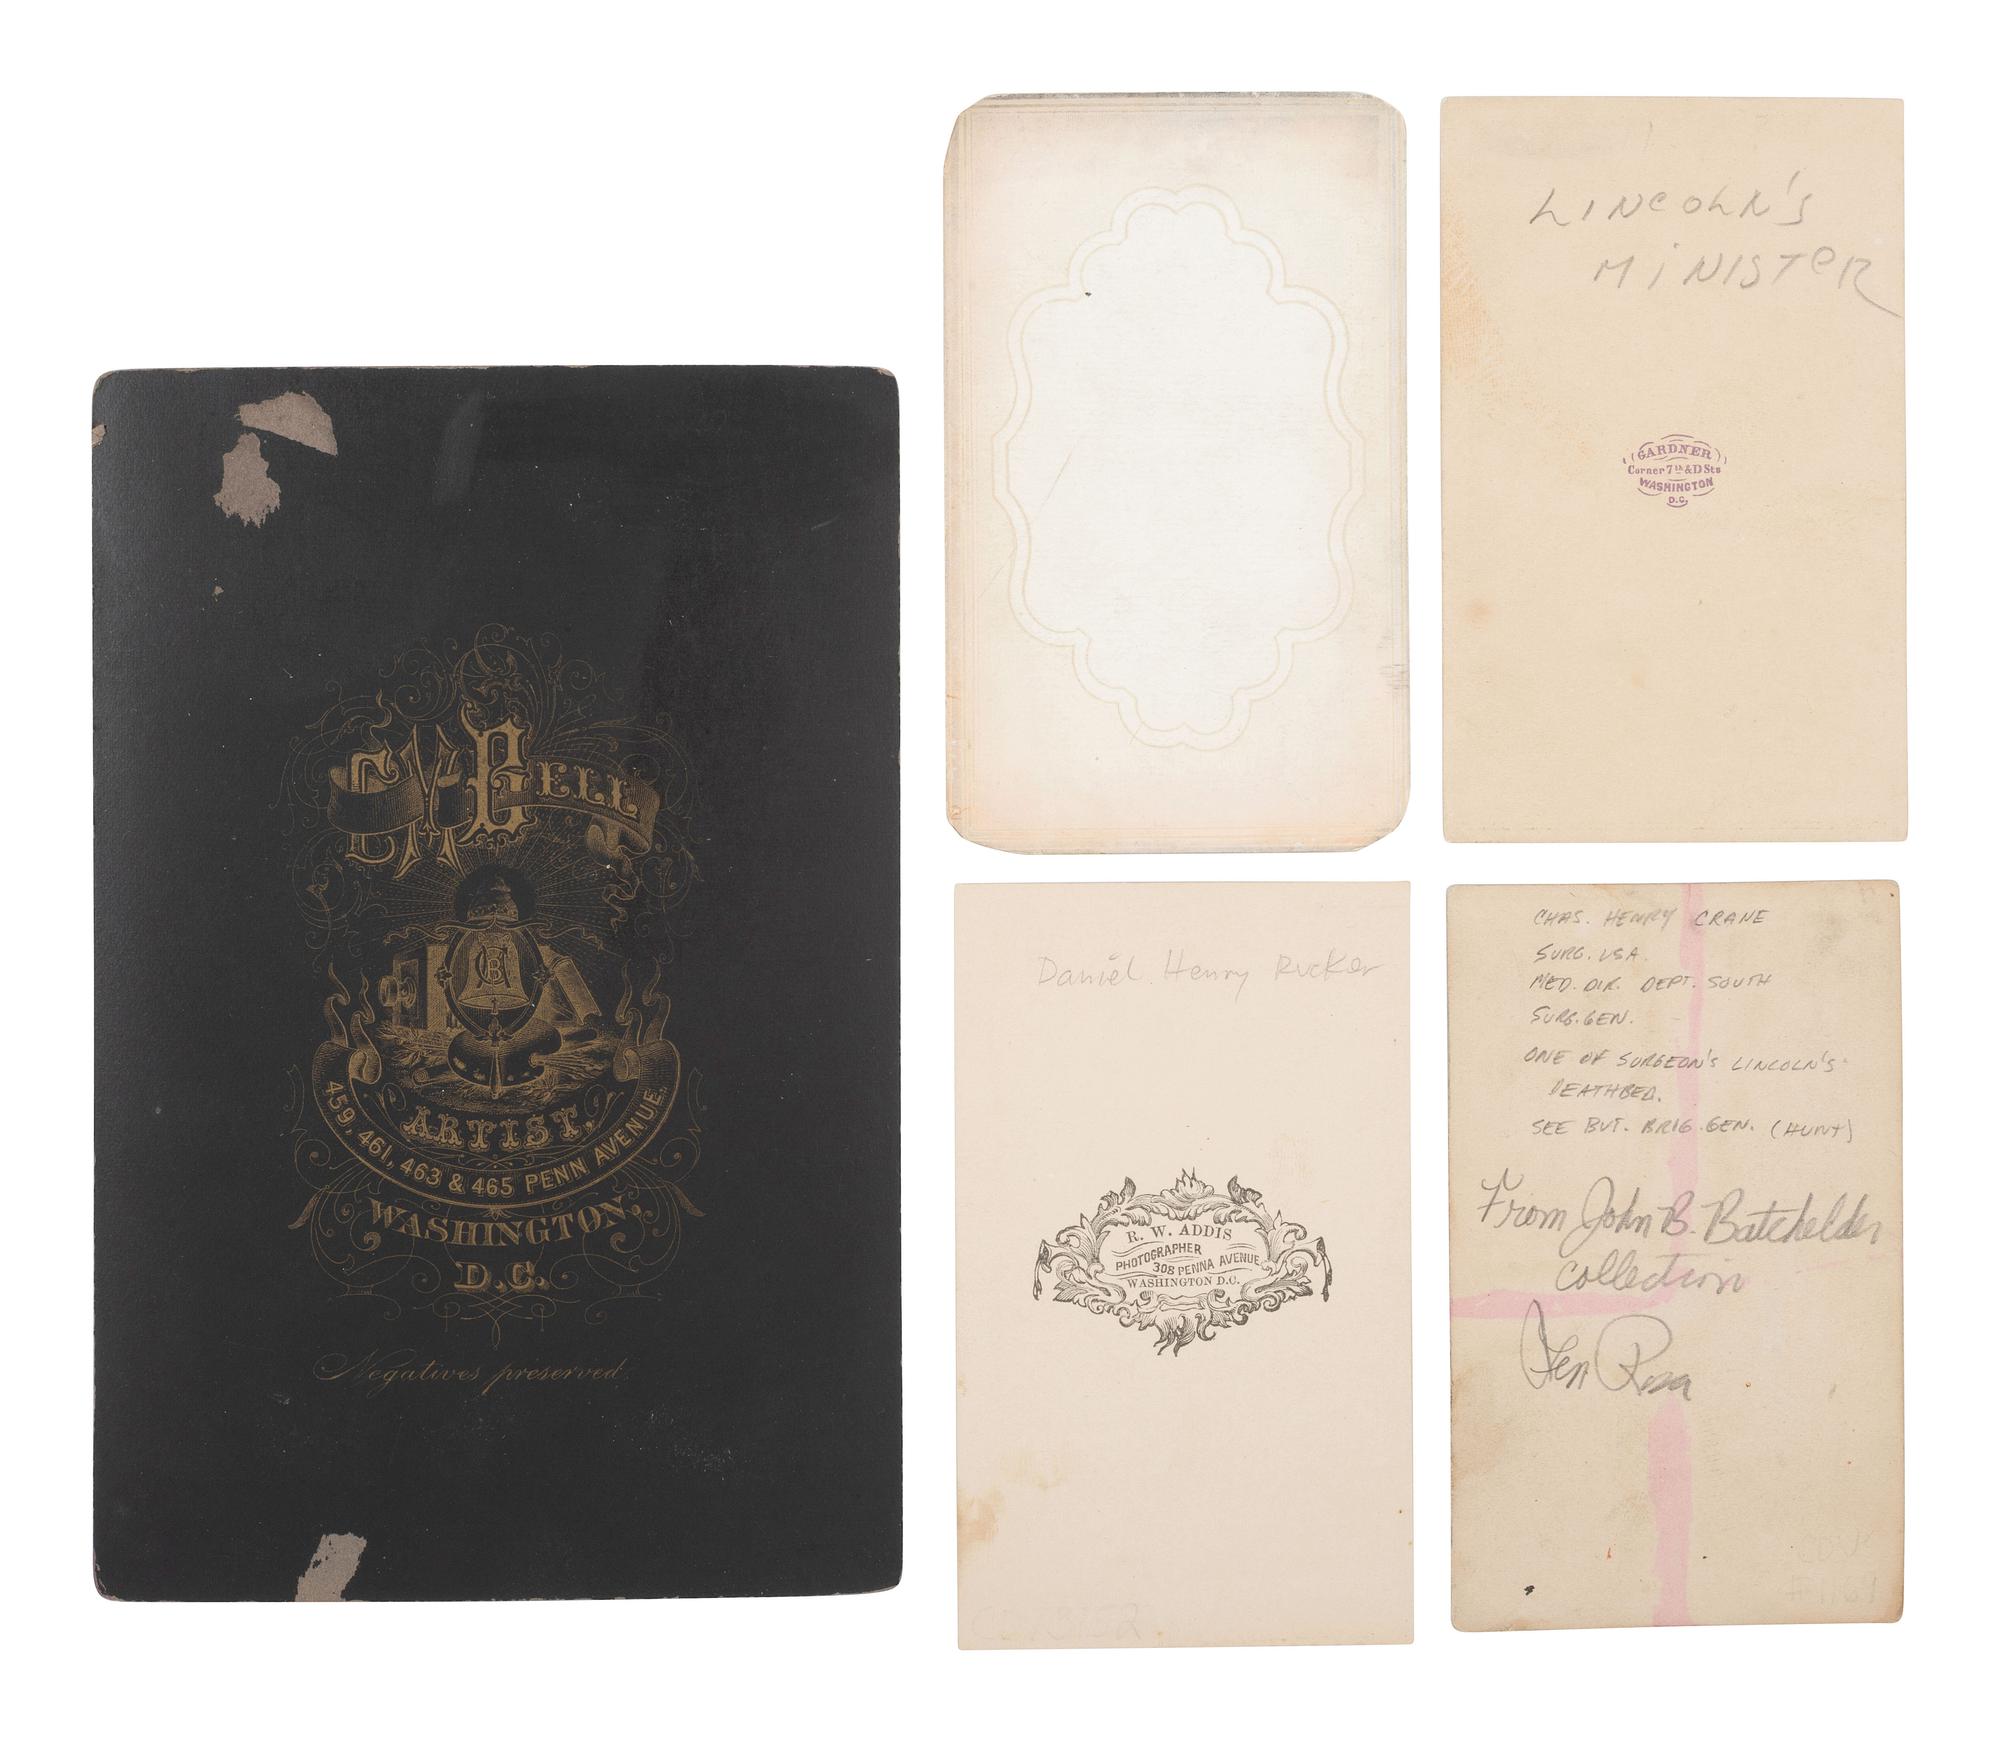 C M Bell
ARTIST,
459, 461, 463 & 465 PENN AVENUE.
WASHINGTON,
D.C.
Negatives preserved.
LINCOLN'S
MINISTER
GARDNER
Corner 7th & D Sts
WASHINGTON
D.C.
Daniel Henry Rucker
R. W. ADDIS
PHOTOGRAPHER
308 PENNA AVENUE
WASHINGTON D.C.
CHAS. HENRY CRANE
SURG. USA.
MED. DIR. DEPT. SOUTH
SURG. GEN.
ONE OF SURGEON'S LINCOLN'S
DEATHBED.
SEE BVT. BRIG. GEN. (HUNT)
From John B. Batchelder
collection